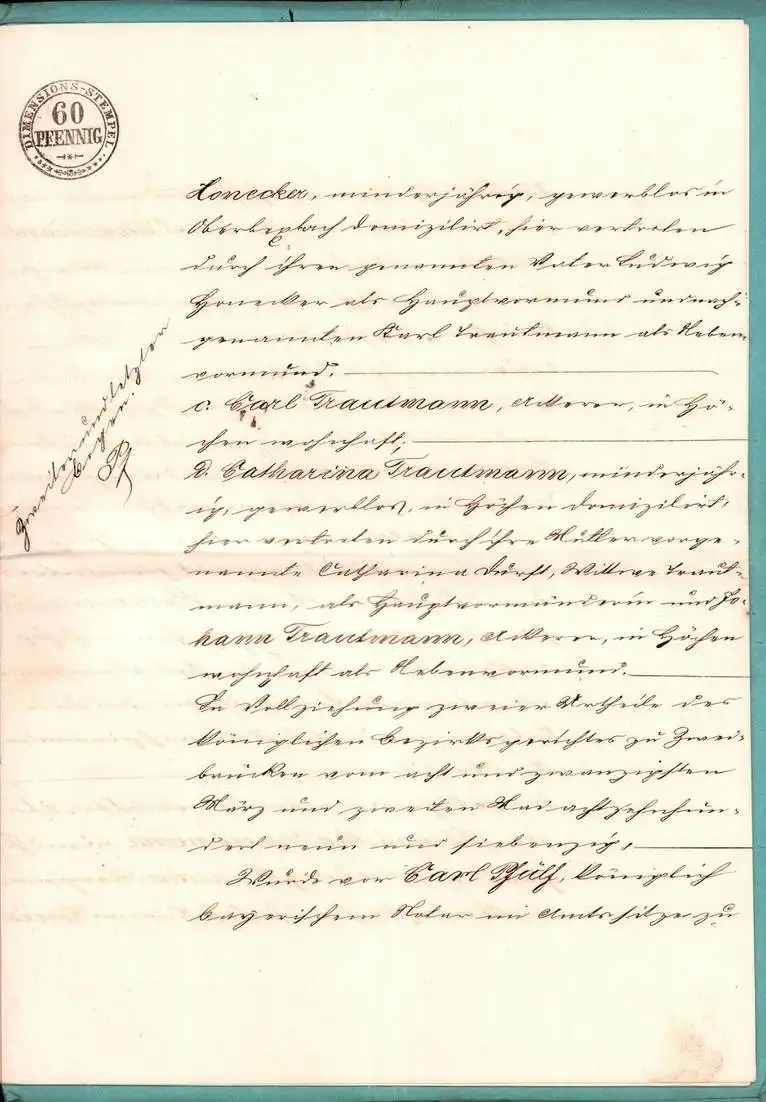 DIMENSIONS-STEMPEL
60
PFENNIG
Zweiter und letzter
Bogen.
Honecker, minderjährig, gewerblos in
Oberbexbach domizilirt, hier vertreten
durch ihren genannten Vater Ludwig
Honecker als Hauptvormund und nach-
genannten Karl Trautmann als Neben-
vormund.
c. Carl Trautmann, Ackerer, in Hö-
chen wohnhaft;
D. Catharina Trautmann, minderjähr-
ig, gewerblos, in Höchen domizilirt,
hier vertreten durch ihre Mutter vorge-
nannte Catharina Durst, Wittwe Traut-
mann, als Hauptvormünderin und Jo-
hann Trautmann, Ackerer, in Höchen
wohnhaft als Nebenvormund.
In Vollziehung zweier Urtheile des
königlichen Bezirksgerichtes zu Zwei-
brücken vom acht und zwanzigsten
März und zweiten Mai achtzehnhun-
dert neun und siebenzig,
Wurde vor Carl Pfülf, königlich
bayerischem Notar im Amtssitze zu